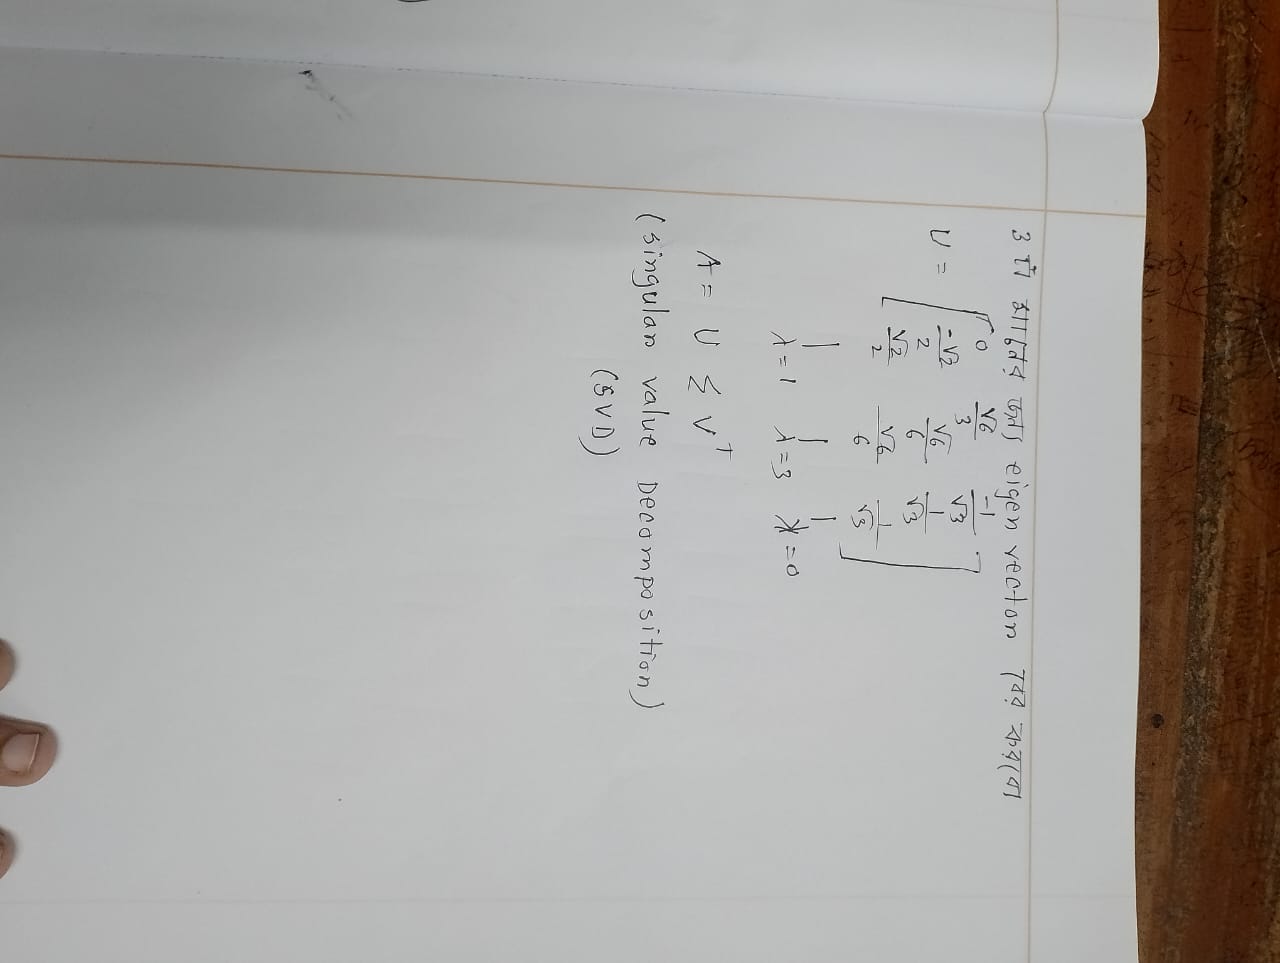 3 টা মানের জন্য eigen vector বের করবো
U = [ 0 √6/3 -1/√3
-√2/2 √6/6 1/√3
√2/2 √6/6 1/√3 ]
λ=1 λ=3 λ=0
A = U Σ V^T
(singular value Decomposition)
(SVD)